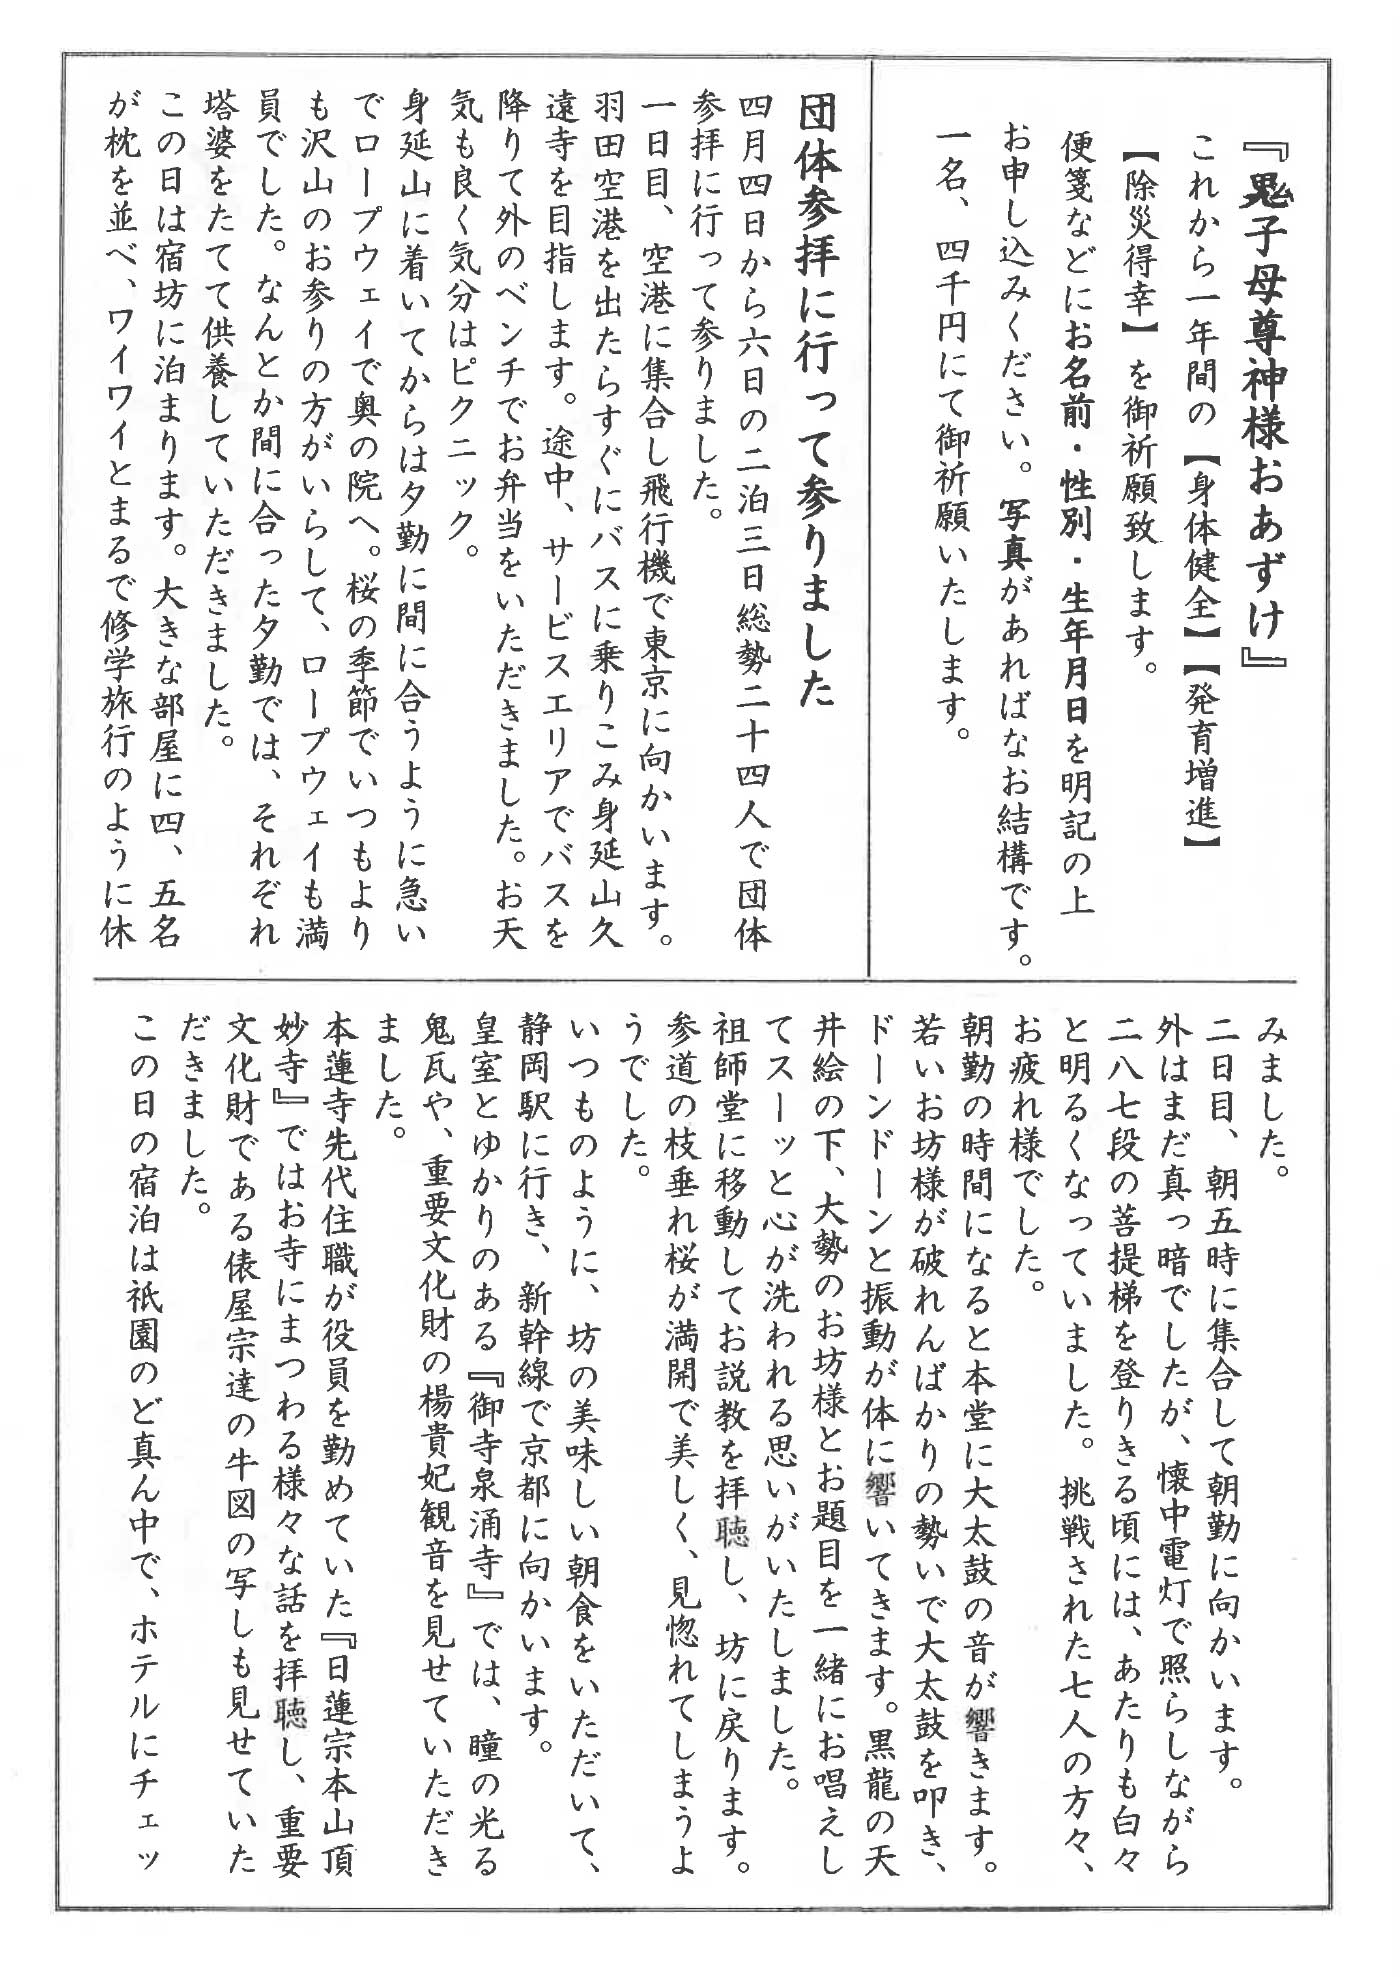 『鬼子母尊神様おあずけ』
これから一年間の【身体健全】【発育増進】
【除災得幸】を御祈願致します。
便箋などにお名前・性別・生年月日を明記の上
お申し込みください。写真があればなお結構です。
一名、四千円にて御祈願いたします。
団体参拝に行って参りました
四月四日から六日の二泊三日総勢二十四人で団体
参拝に行って参りました。
一日目、空港に集合し飛行機で東京に向かいます。
羽田空港を出たらすぐにバスに乗りこみ身延山久
遠寺を目指します。途中、サービスエリアでバスを
降りて外のベンチでお弁当をいただきました。お天
気も良く気分はピクニック。
身延山に着いてからは夕勤に間に合うように急い
でロープウェイで奥の院へ。桜の季節でいつもより
も沢山のお参りの方がいらして、ロープウェイも満
員でした。なんとか間に合った夕勤では、それぞれ
塔婆をたてて供養していただきました。
この日は宿坊に泊まります。大きな部屋に四、五名
が枕を並べ、ワイワイとまるで修学旅行のように休
みました。
二日目、朝五時に集合して朝勤に向かいます。
外はまだ真っ暗でしたが、懐中電灯で照らしながら
二八七段の菩提梯を登りきる頃には、あたりも白々
と明るくなっていました。挑戦された七人の方々、
お疲れ様でした。
朝勤の時間になると本堂に大太鼓の音が響きます。
若いお坊様が破れんばかりの勢いで大太鼓を叩き、
ドーンドーンと振動が体に響いてきます。黒龍の天
井絵の下、大勢のお坊様とお題目を一緒にお唱えし
てスーッと心が洗われる思いがいたしました。
祖師堂に移動してお説教を拝聴し、坊に戻ります。
参道の枝垂れ桜が満開で美しく、見惚れてしまうよ
うでした。
いつものように、坊の美味しい朝食をいただいて、
静岡駅に行き、新幹線で京都に向かいます。
皇室とゆかりのある『御寺泉涌寺』では、瞳の光る
鬼瓦や、重要文化財の楊貴妃観音を見せていただき
ました。
本蓮寺先代住職が役員を勤めていた『日蓮宗本山頂
妙寺』ではお寺にまつわる様々な話を拝聴し、重要
文化財である俵屋宗達の牛図の写しも見せていた
だきました。
この日の宿泊は祇園のど真ん中で、ホテルにチェッ